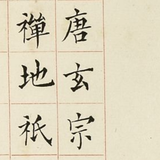 唐玄宗
禪地祇